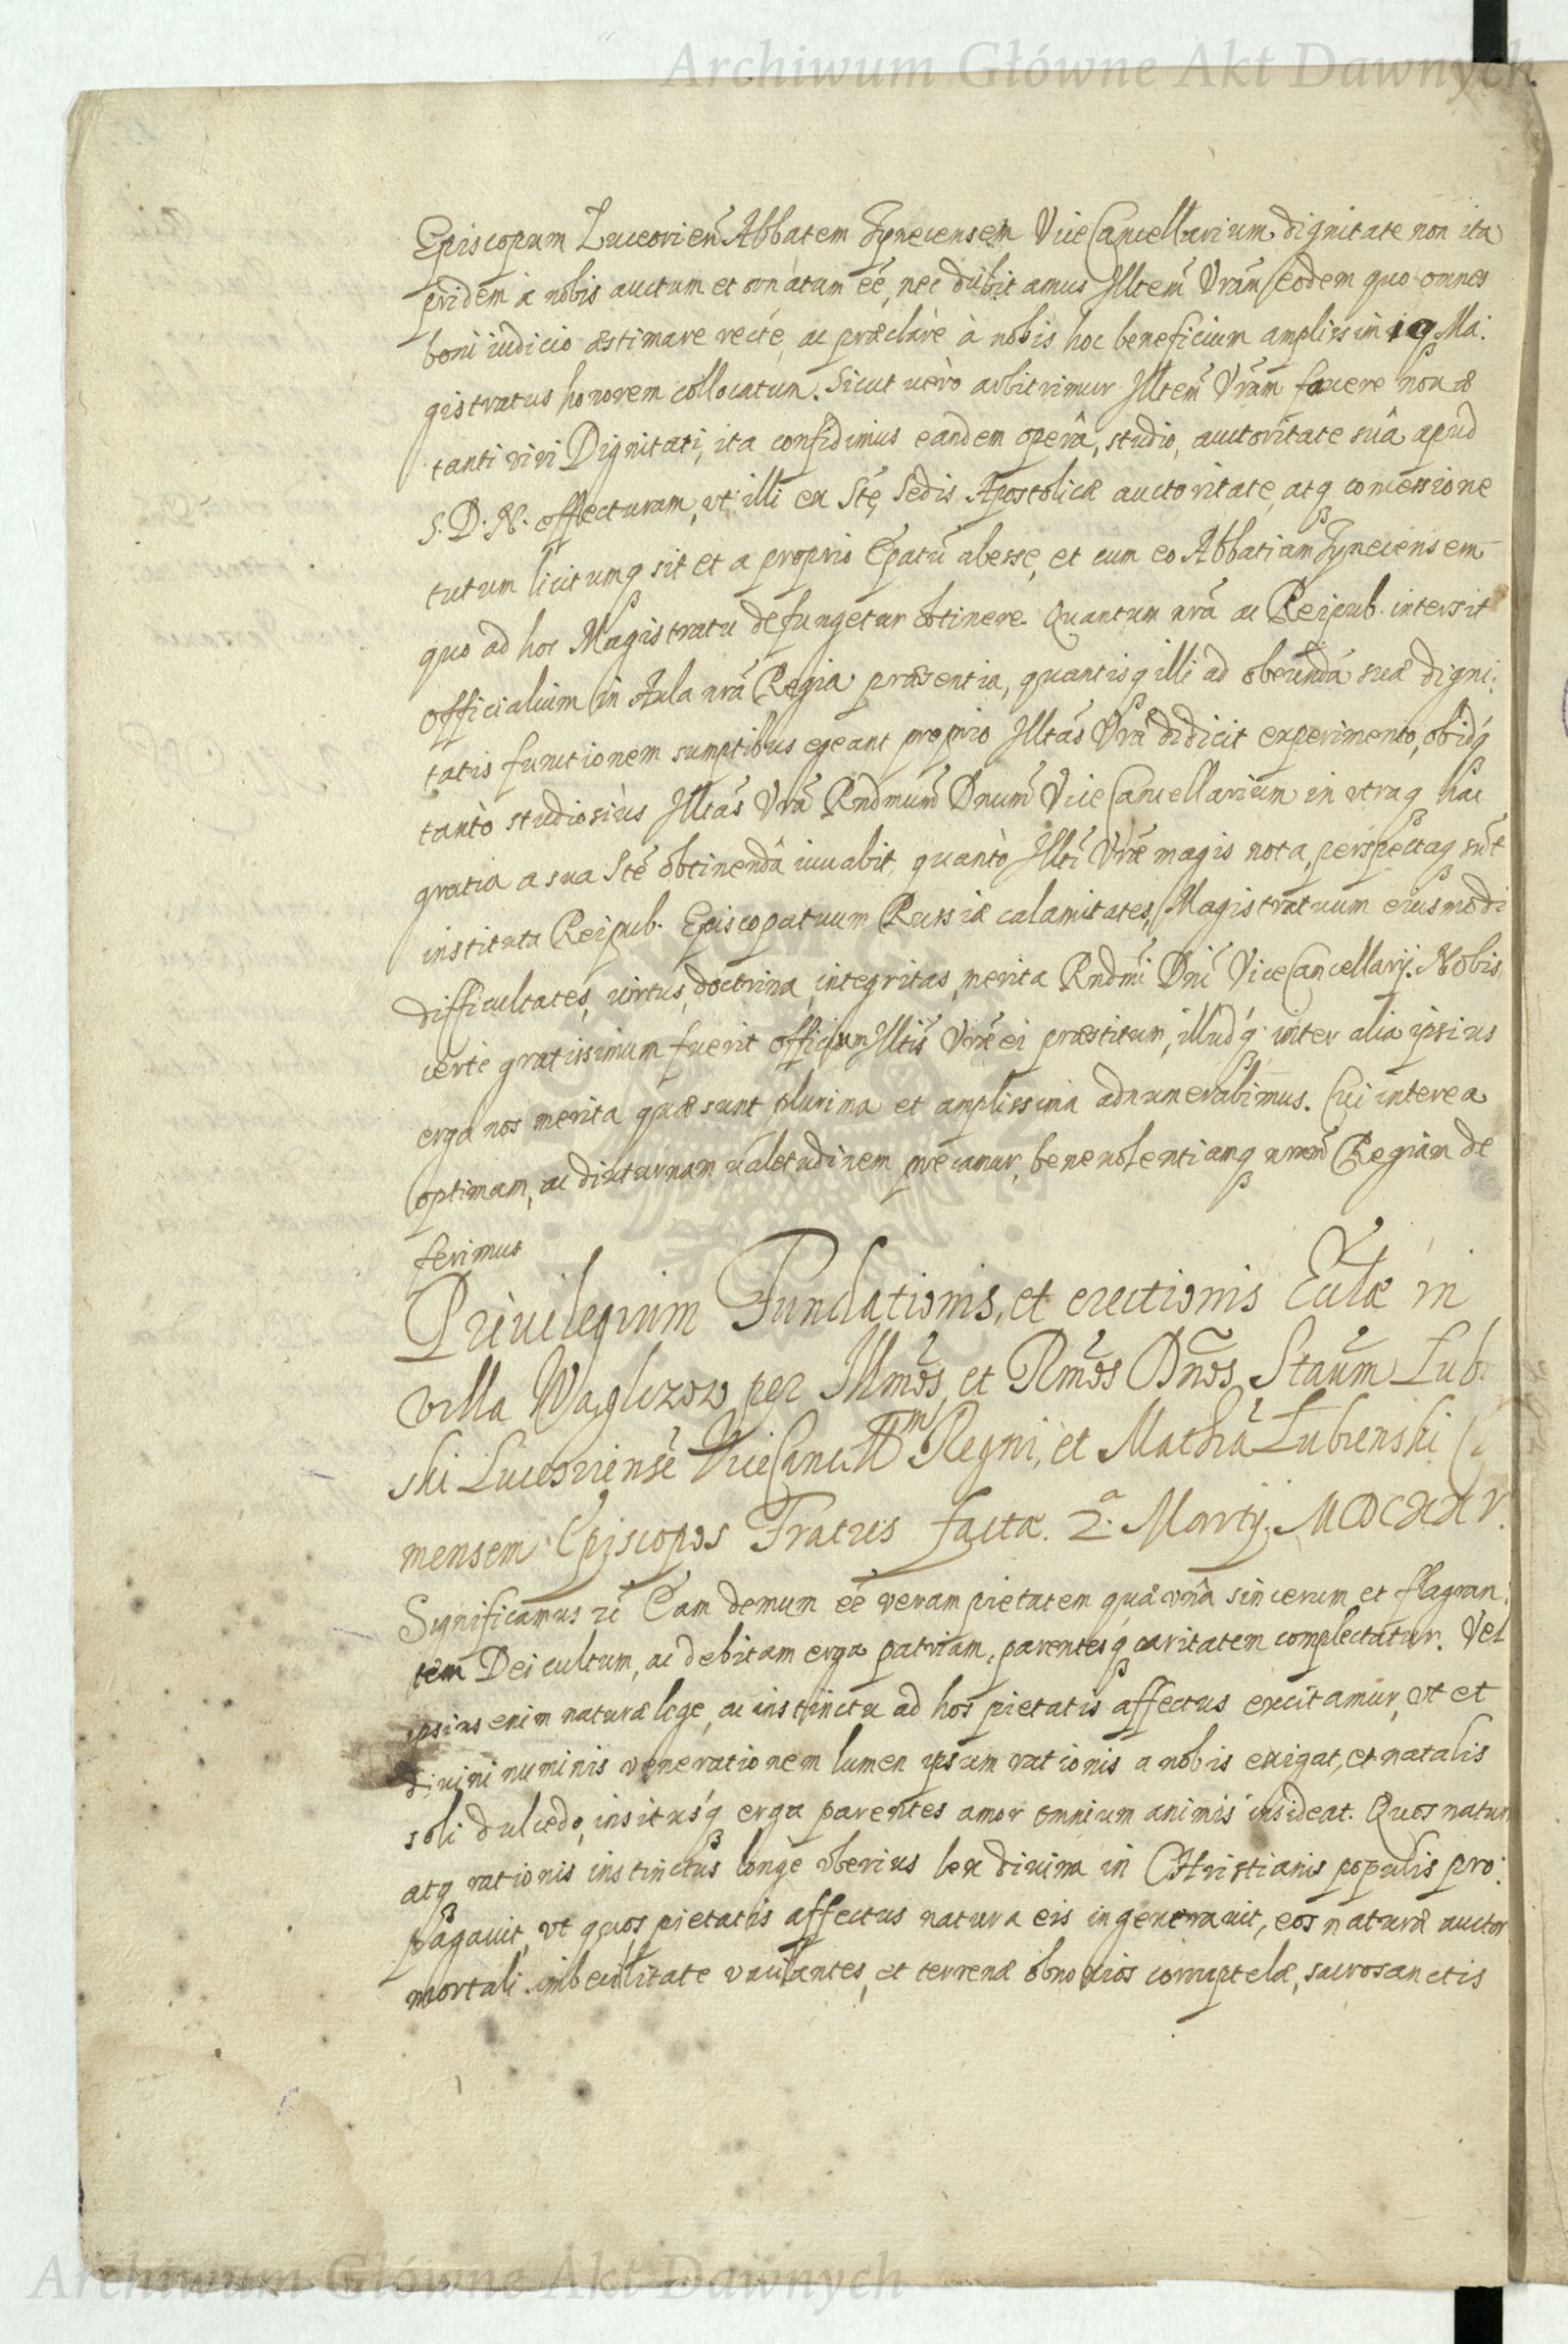 Archiwum Główne Akt Dawnych
Episcopum Luceorien̄ Abbatem Tynecensem ViceCancellarium dignitate non ita
pridem à nobis auctum et ornatum eē, nec dubitamus Illtem̄ Vram̄ eodem quo omnes
boni iudicio æstimare rectè, ac præclarè à nobis hoc beneficium ampliss in Ma:
gistratus honorem collocatum. Sicut uerò arbitrimur Illtem̄ Vram̄ fauere nouæ
tanti viri Dignitati, ita confidimus eandem operâ, studio, auctoritate suâ apud
S. D. N. effecturam, vt illi ex Stę Sedis Apostolicæ auctoritate, atq concessione
tutum licitumq sit et a proprio Ep̄atu abesse, et cum eo Abbatiam Tynecensem
quo ad hoc Magistratu defungetur obtinere. Quantum nrā ac Reipub. intersit
officialium in Aula nrā Regia præsentia, quantisq illi ad obeundā suæ digni:
tatis functionem sumptibus egeant proprio Illtas̄ Vrā didicit experimento, obidq
tantò studiosiùs Illtas̄ Vrā Rndmum̄ Dnum̄ ViceCancellarium in vtraq hac
gratia a sua Stē obtinendâ iuuabit, quantò Illti̅ Vræ̅ magis nota, perspectaq sūt
instituta Reipub. Episcopatuum Russiæ calamitates, Magistratuum eiusmodi
difficultates, uirtus, doctrina, integritas, merita Rndmi̅ Dni̅ ViceCancellarij. Nobis
certè gratissimum fuerit officium Illtis̄ Vræ̅ ei præstitum, illudq inter alia ipsius
erga nos merita quæ sunt plurima et amplissima adnumerabimus. Cui interea
optimam, ac diuturnam ualetudinem precamur, beneuolentiamq nram̄ Regiam de
ferimus
Priuilegium Fundationis, et erectionis Eccl̄æ in
villa Waglczow per Illmos̄, et Rmos̄ Dnos̄ Staūm Lub
ski Luceoriensē ViceCancllm Regni, et Mathiā Łubienski
mensem Episcopos Fratres factæ. 2.a Martij. MDCXXV.
Significamus rc̄ Eam demum eē veram pietatem quæ vnâ sincerum et flagran:
tem Dei cultum, ac debitam erga patriam, parentesq caritatem complectatur. Vel
ipsius enim naturæ lege, ac instinctu ad hos pietatis affectus excitamur, vt et
diuini numinis venerationem lumen ipsum rationis a nobis exigat, et natalis
soli dulcedo, insitusq erga parentes amor omnium animis insideat. Quos natur
atq rationis instinctus longè vberius lex diuina in Christianis populis pro:
pagauit, vt quos pietatis affectus natura eis ingenerauit, eos naturæ auctor
mortali imbecillitate vacillantes, et terrenæ obnoxios corruptelæ, sacrosanctis
Archiwum Główne Akt Dawnych